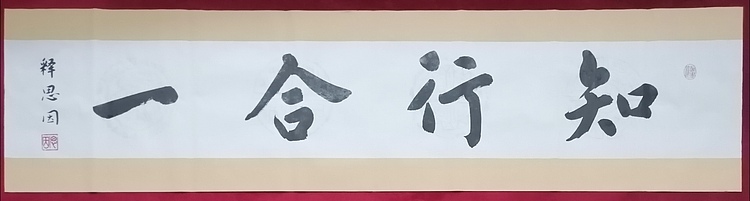 知行合一
释思因